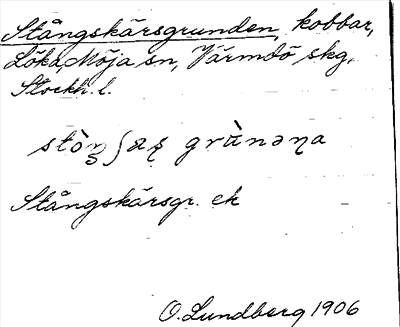 Stångskärsgrunden, kobbar,
Löka, Möja sn, Värmdö skg,
Stockh. l.
Stångskärsgr. ek
O. Lundberg 1906